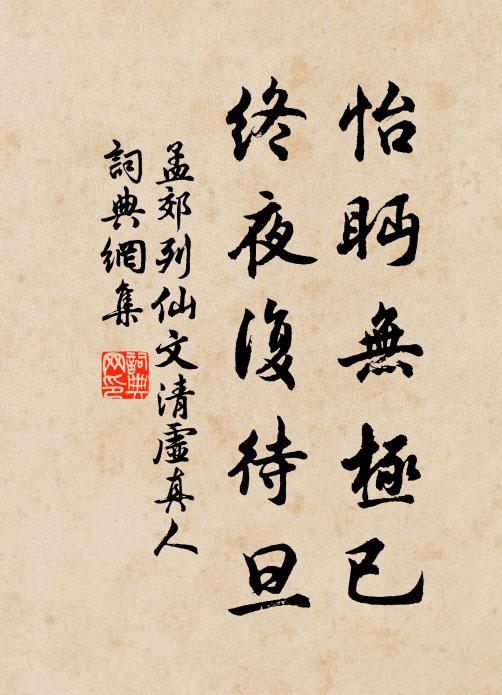 怡眄無極已
終夜復待旦
孟郊列仙文清虛真人
詞典網集
詞典網印